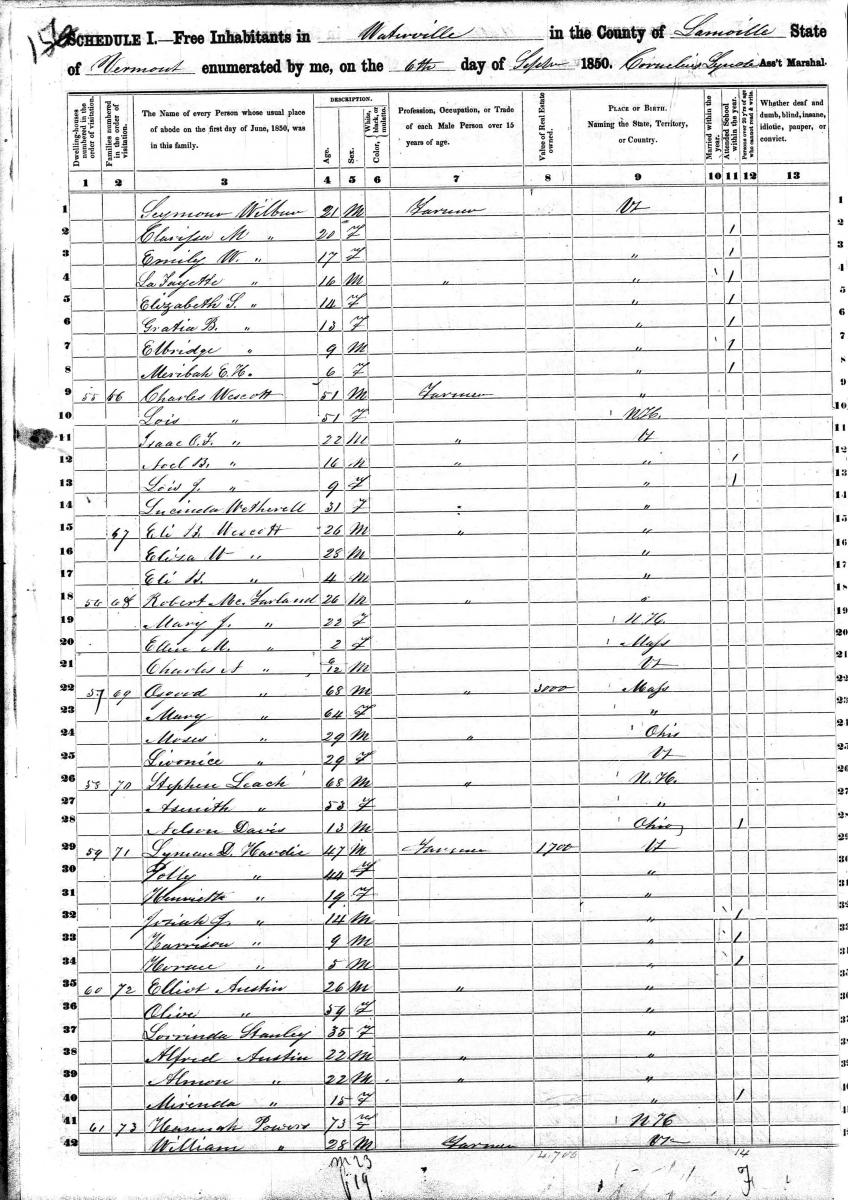 150
SCHEDULE I.—Free Inhabitants in Waterville in the County of Lamoille State
of Vermont enumerated by me, on the 6th day of Septr 1850. Cornelius Lynde Ass't Marshal.
Dwelling-houses numbered in the order of visitation.
Families numbered in the order of visitation.
The Name of every Person whose usual place of abode on the first day of June, 1850, was in this family.
DESCRIPTION.
Age.
Sex.
Color, White, black, or mulatto.
Profession, Occupation, or Trade of each Male Person over 15 years of age.
Value of Real Estate owned.
PLACE OF BIRTH. Naming the State, Territory, or Country.
Married within the year.
Attended School within the year.
Persons over 20 y'rs of age who cannot read & write.
Whether deaf and dumb, blind, insane, idiotic, pauper, or convict.
1 2 3 4 5 6 7 8 9 10 11 12 13
1 Seymour Wilbur 21 M Farmer Vt 1
2 Clarissa M " 20 F 1 2
3 Emily W. " 17 F " 1 3
4 La Fayette " 16 M " " 1 4
5 Elizabeth S. " 14 F " 1 5
6 Gratia B. " 13 F " 1 6
7 Elbridge " 9 M " 1 7
8 Meribah E.H. 6 F " 1 8
9 55 66 Charles Wescott 51 M Farmer " 9
10 Lois " 51 F N.H. 10
11 Isaac O.F. " 22 M " Vt 11
12 Noel B. " 16 M " " 1 12
13 Lois J. " 9 F " 1 13
14 Lucinda Wetherell 31 F " 14
15 67 Eli B. Wescott 26 M " " 15
16 Eliza W " 28 M " 16
17 Eli B. " 4 M " 17
18 56 68 Robert Mc.Farland 26 M " " 18
19 Mary J. " 22 F N.H.
20 Ellen M. " 2 F Mass
21 Charles A " 6/12 M Vt
22 57 69 Osgood " 68 M " 3000 Mass
23 Mary " 64 F "
24 Moses " 29 M " Ohio
25 Livonice " 29 F Vt
26 58 70 Stephen Leach 68 M " N.H.
27 Asenith " 53 F "
28 Nelson Davis 13 M Ohio 1
29 59 71 Lyman D. Hardie 47 M Farmer 1700 Vt
30 Polly " 44 F "
31 Henrietta " 19 F "
32 Josiah J. " 14 M " 1
33 Harrison " 9 M " 1
34 Horace " 5 M " 1
35 60 72 Elliot Austin 26 M " "
36 Olive " 59 F "
37 Lorrinda Stanley 35 F "
38 Alfred Austin 22 M " "
39 Almon " 22 M " "
40 Mirenda " 15 F " 1
41 61 73 Hannah Powers 73 F N.H
42 William " 28 M Farmer Vt
m 23 4700 14
f 19 F